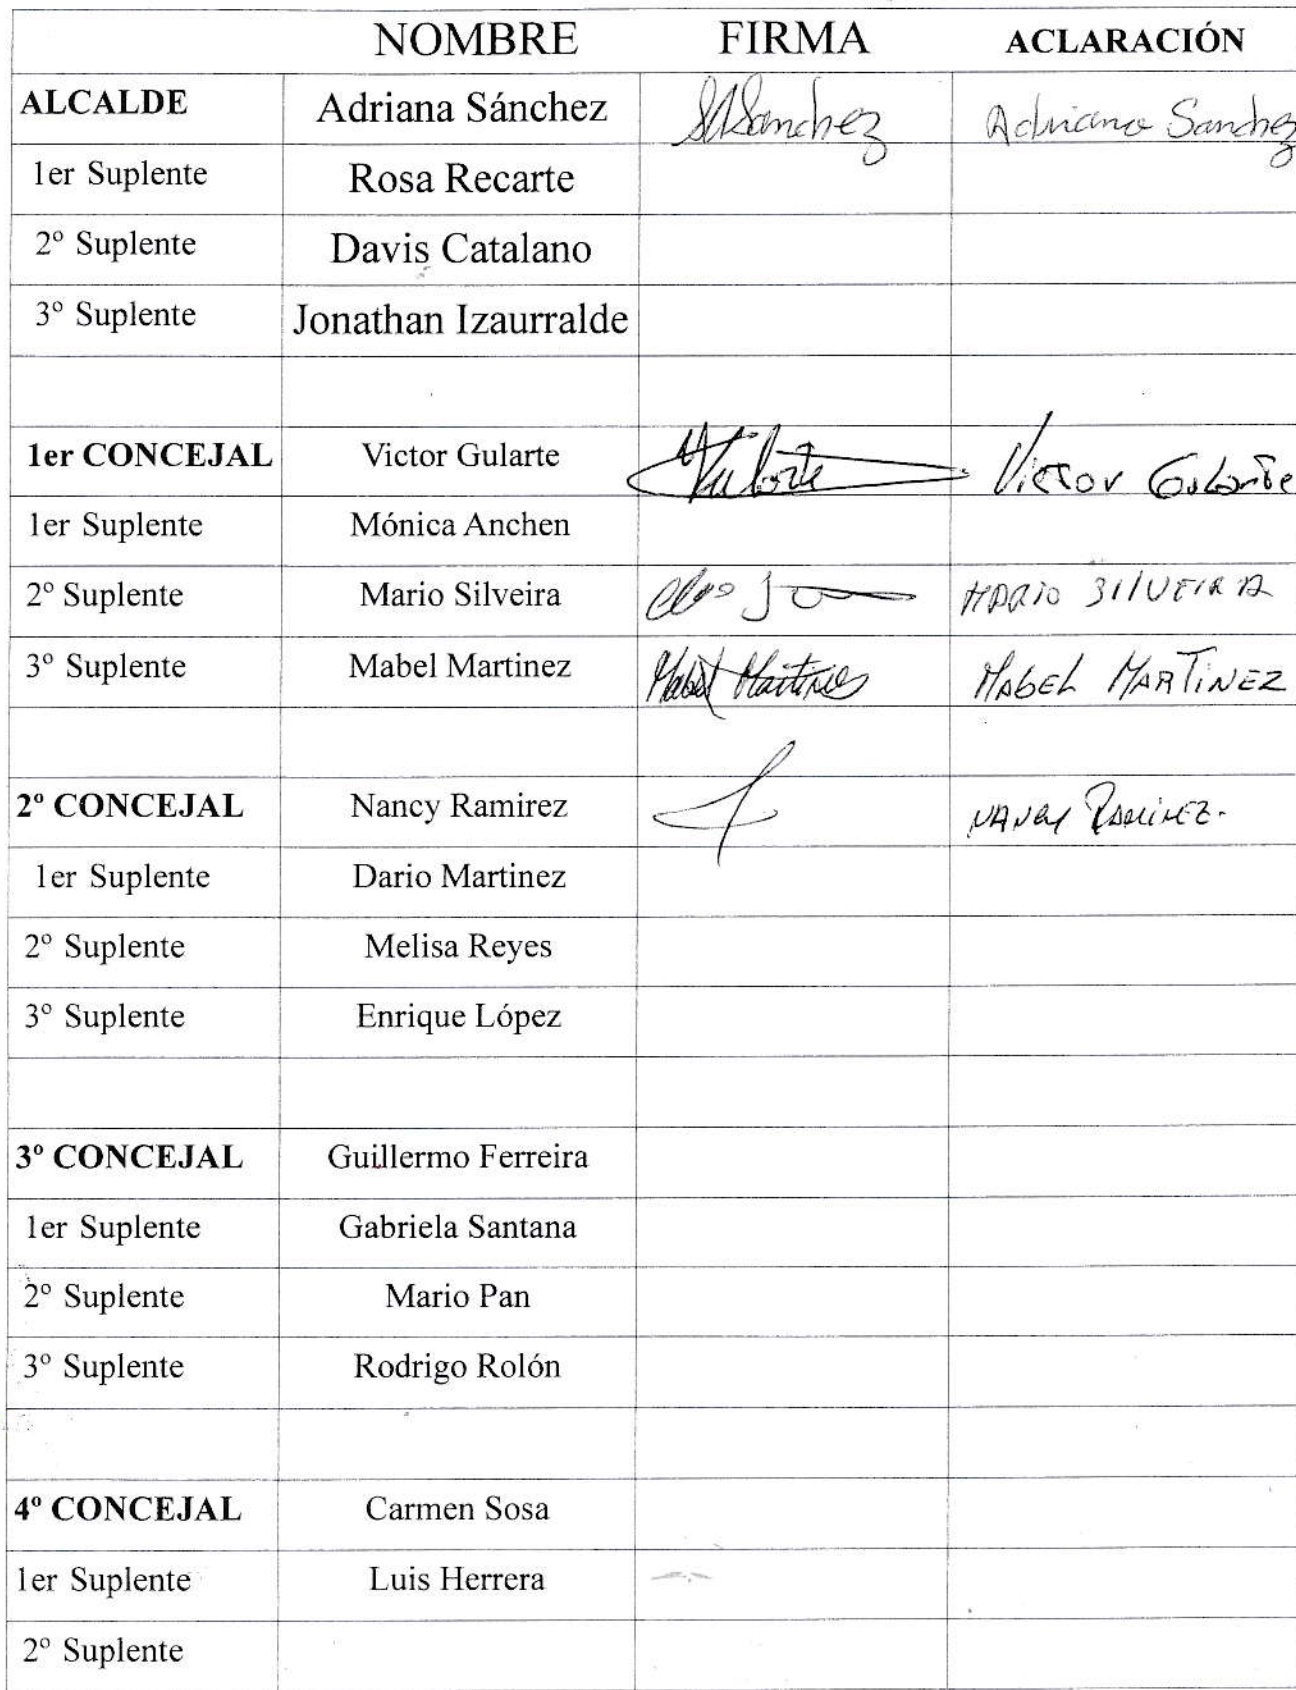 NOMBRE FIRMA ACLARACIÓN
ALCALDE Adriana Sánchez SASanchez Adriana Sanchez
1er Suplente Rosa Recarte
2º Suplente Davis Catalano
3º Suplente Jonathan Izaurralde
1er CONCEJAL Victor Gularte Victor Gularte
1er Suplente Mónica Anchen
2º Suplente Mario Silveira MARIO SILVEIRA
3º Suplente Mabel Martinez Mabel Martinez MABEL MARTINEZ
2º CONCEJAL Nancy Ramirez NANCY RAMIREZ.
1er Suplente Dario Martinez
2º Suplente Melisa Reyes
3º Suplente Enrique López
3º CONCEJAL Guillermo Ferreira
1er Suplente Gabriela Santana
2º Suplente Mario Pan
3º Suplente Rodrigo Rolón
4º CONCEJAL Carmen Sosa
1er Suplente Luis Herrera
2º Suplente